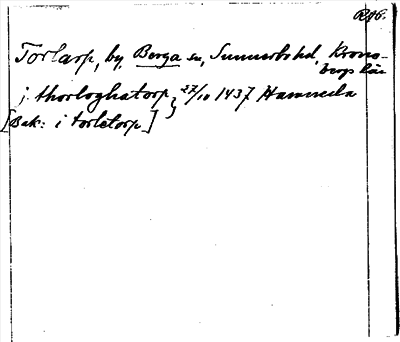 RAÖ.
Torlarp, by, Berga sn, Sunnerbo hd, Krono-
bergs län
j thorloghatorp, 27/10 1437 Hamneda
[Bak: i torletorp]